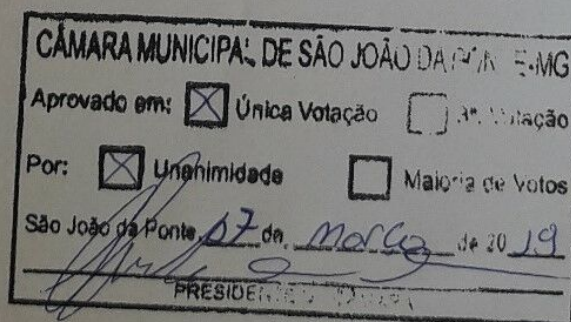 CÂMARA MUNICIPAL DE SÃO JOÃO DA PONTE-MG
Aprovado em: Única Votação Votação
Por: Unanimidade Maioria de Votos
São João da Ponte, 07 de março de 2019
PRESIDENTE DA CÂMARA